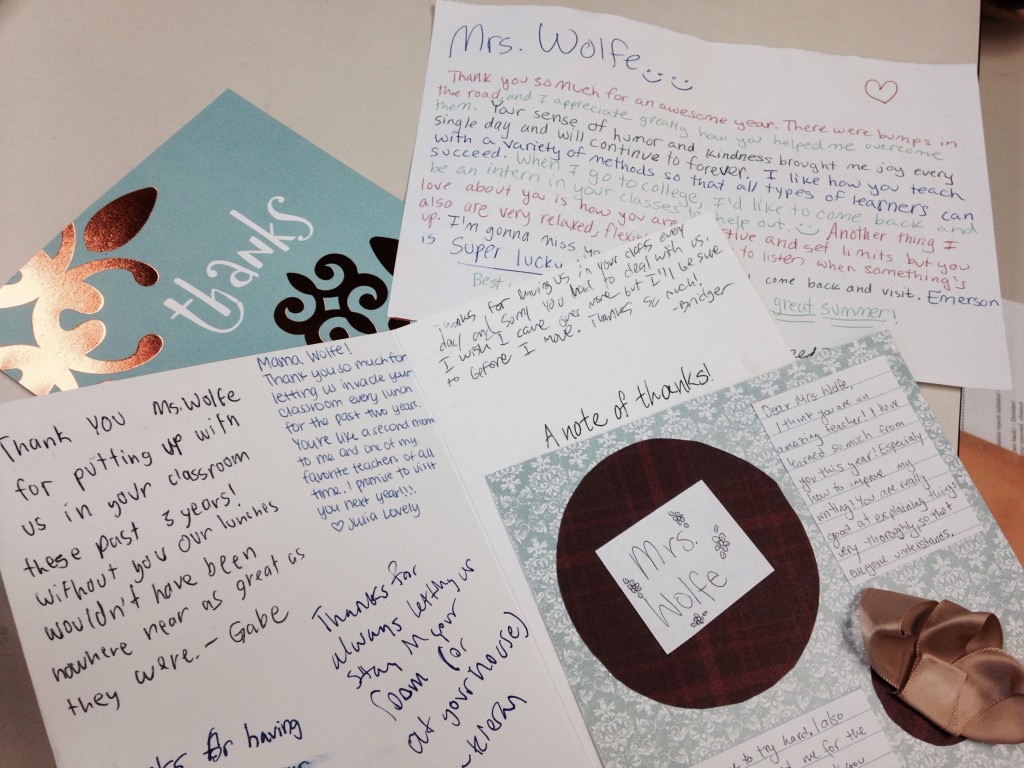 Mrs. Wolfe
Thank you so much for an awesome year. There were bumps in
the road, and I appreciate greatly how you helped me overcome
them. Your sense of humor and kindness brought me joy every
single day and will continue to forever. I like how you teach
with a variety of methods so that all types of learners can
succeed. When I go to college, I'd like to come back and
be an intern in your classes to help out. Another thing I
love about you is how you are tive and set limits but you
also are very relaxed, to listen when something's
up. I'm gonna miss
is Super lucky come back and visit. Emerson
Best great summer!
thanks
Thanks for having us in your class every
day and sorry you had to deal with us.
I wish I came over more but I'll be sure
to before I move. Thanks so much!
-Bridger
A note of thanks!
Mama Wolfe!
Thank you so much for
letting us invade your
classroom every lunch
for the past two years.
You're like a second mom
to me and one of my
favorite teachers of all
time. I promise to visit
you next year!!!
♡ Julia Lovely
Thank you Ms. Wolfe
for putting up with
us in your classroom
these past 3 years!
Without you our lunches
wouldn't have been
nowhere near as great as
they were. - Gabe
Thanks for
always letting us
stay in your
room (or
at your house)
-Kieran
for having
Dear Mrs. Wolfe,
I think you are an
amazing teacher! I have
learned so much from
you this year! Especialy
how to improve my
writing! You are really
good at explaining things
very thoroughly, so that
everyone understands.
Mrs.
Wolfe
to try hard. I also
me for the
you